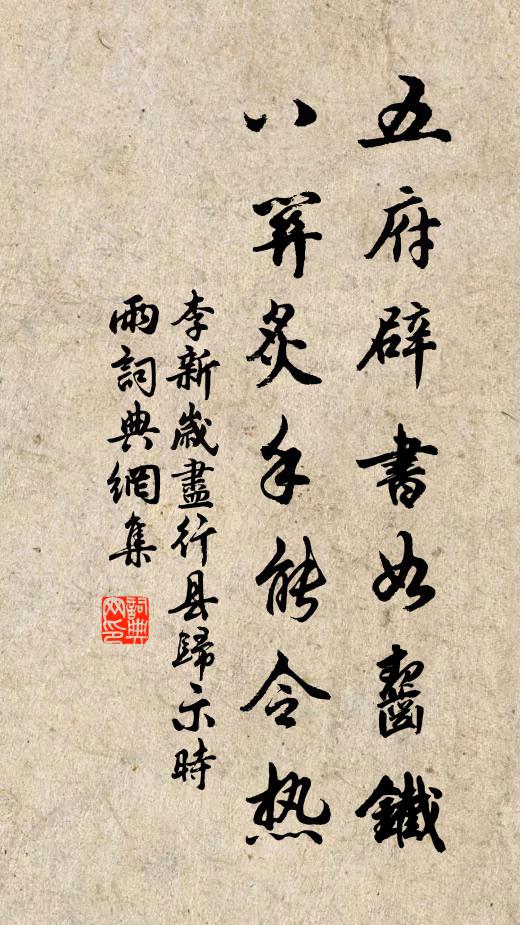 五府辟書如齧鐵
八荓炙手能令热
李新歲盡行县歸示時
雨詞典網集
詞典
网印